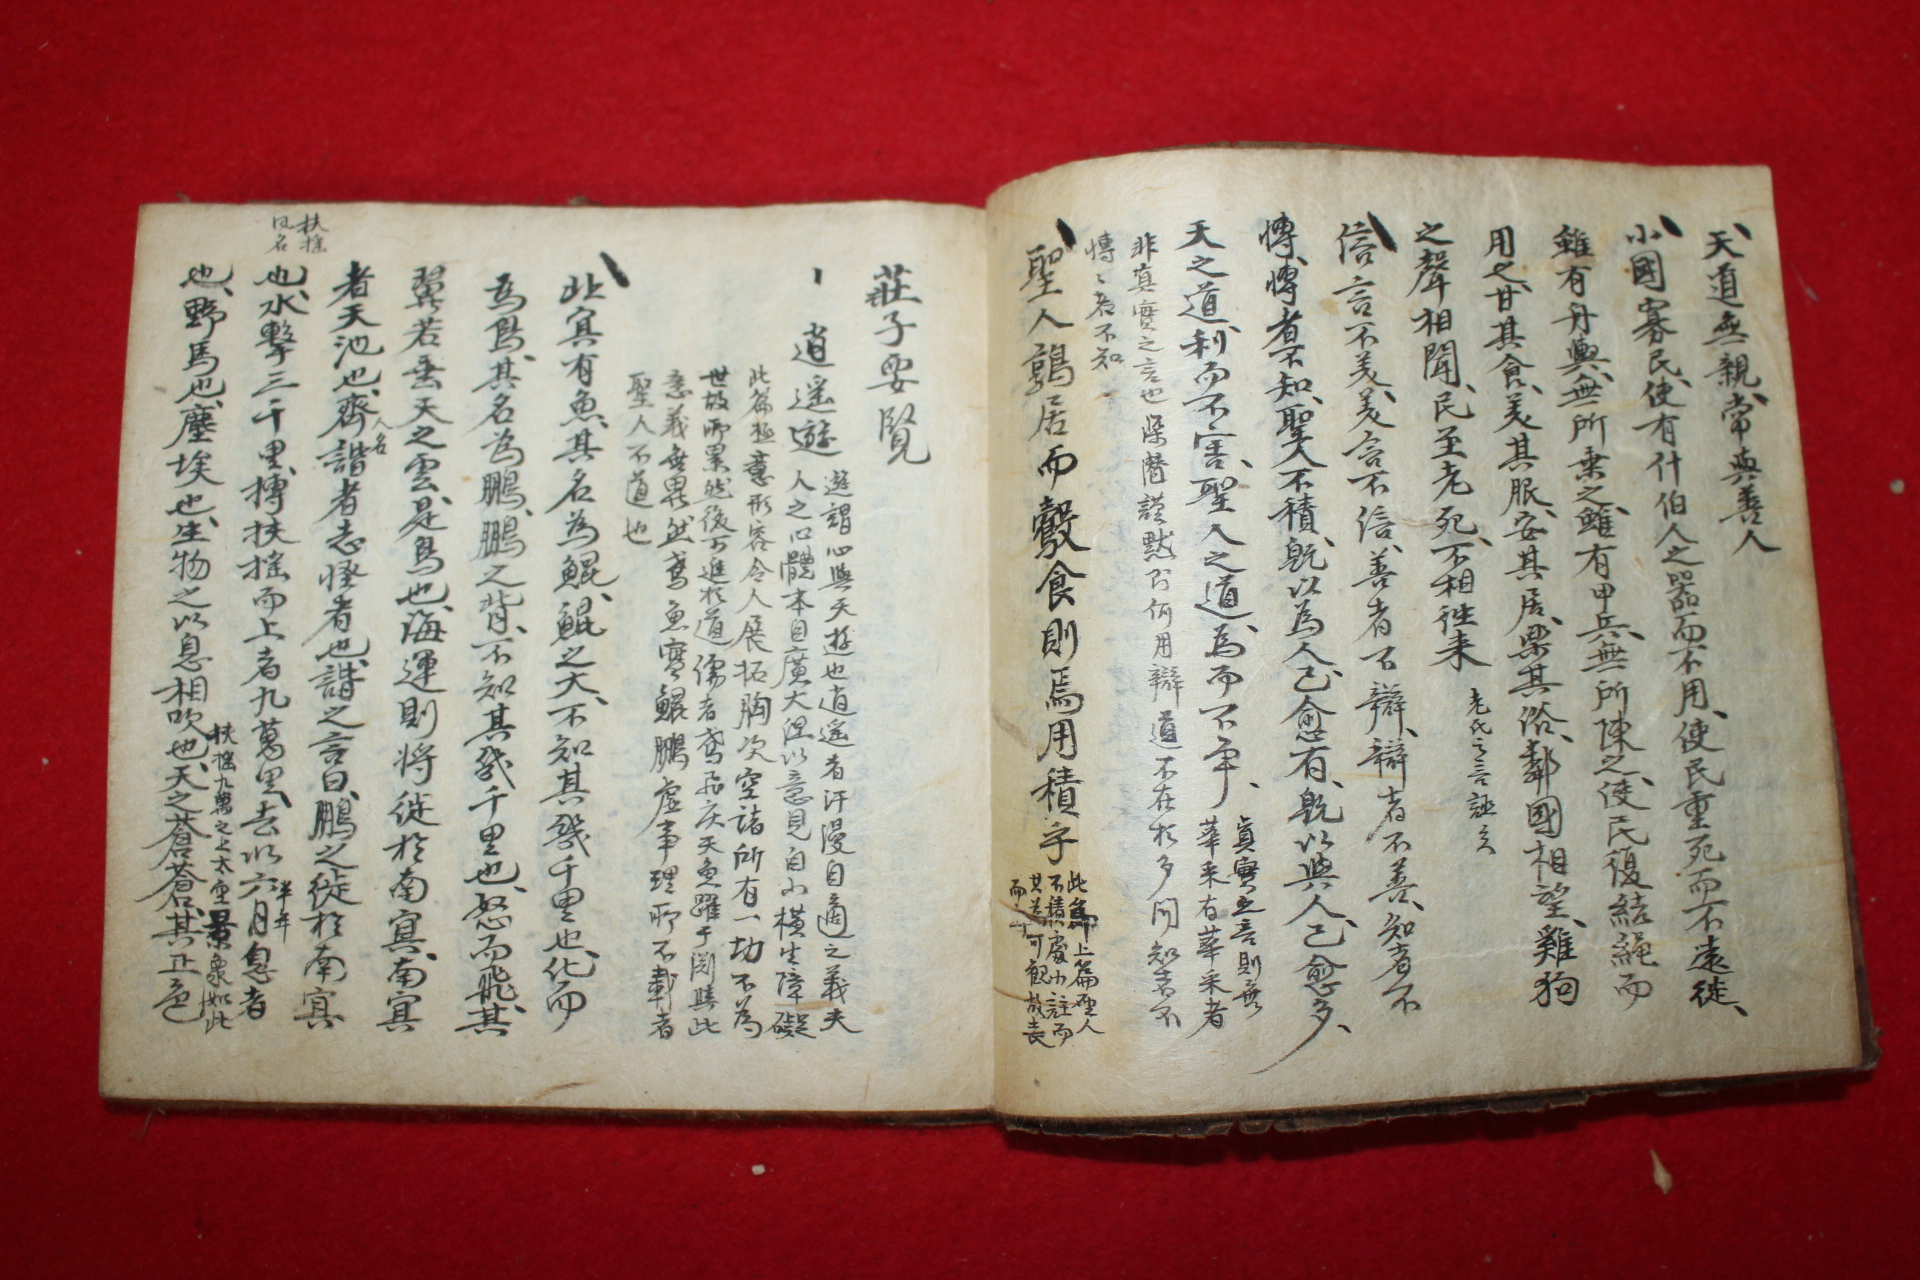 天道無親常與善人
小國寡民使有什伯人之器而不用使民重死而不遠徙
雖有舟輿無所乗之雖有甲兵無所陳之使民復結繩而
用之甘其食美其服安其居樂其俗鄰國相望雞狗
之聲相聞民至老死不相徃来
老氏之言
信言不美美言不信善者不辯辯者不善知者不
慱慱者不知聖人不積既以為人己愈有既以與人己愈多
天之道利而不害聖人之道為而不争
眞實之言則無
華采有華采者
非真實之言也
謹黙
何用辯道不在於多問知者不
慱慱者不知
聖人鶉居而鷇食則焉用積乎
此篇上篇聖人
不積處小註而
其
可観故
而
莊子要覧
逍遥遊
遊謂心與天遊也逍遥者汗漫自適之義夫
人之心體本自廣大
以意見自小横生障礙
此篇極意形容令人展拓胸次空諸所有一切不為
世故所累然後可進於道儒者鳶飛戾天魚躍于淵與此
意義無異然鳶魚實鯤鵬虚事理所不載者
聖人不道也
北㝠有魚其名為鯤鯤之大不知其幾千里也化而
為鳥其名為鵬鵬之背不知其幾千里也怒而飛其
翼若垂天之雲是鳥也海運則将徙於南㝠南㝠
者天池也齊諧者志怪者也諧之言曰鵬之徙於南㝠
人名
扶揺
風名
也水擊三千里摶扶揺而上者九萬里去以六月息者
半年
也野馬也塵埃也生物之以息相吹也天之蒼蒼其正色
扶揺九萬之上太空景象如此